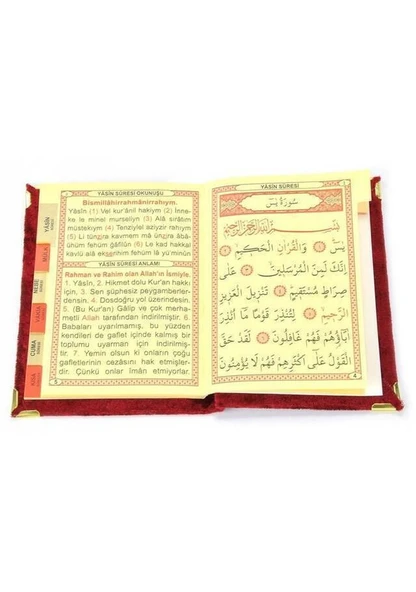 YÂSÎN SÛRESİ OKUNUŞU
Bismillâhirrahmânirrahıym.
Yâsîn (1) Vel kur'ânil hakiym (2) İnne-
ke le minel murseliyn (3) Alâ sırâtim
müstekıym (4) Tenziylel aziyzir rahıym
(5) Li tünzira kavmem mâ ünzira âbâ-
ühüm fehüm ğâfilûn (6) Le kad hakkal
kavlü alâ ekserihim fehüm lâ yü'minûn
YÂSÎN SÛRESİ ANLAMI
Rahman ve Rahim olan Allah'ın İsmiyle.
1. Yâsîn, 2. Hikmet dolu Kur'an hakkı
için, 3. Sen şüphesiz peygamberler-
densin. 4. Dosdoğru yol üzerindesin.
5. (Bu Kur'an) Gâlip ve çok merha-
metli Allah tarafından indirilmiştir. 6.
Babaları uyarılmamış, bu yüzden
kendileri de gaflet içinde kalmış bir
toplumu uyarman için indirilmiş-
tir. 7. Yemin olsun ki onların çoğu
gafletlerinin cezasını hak etmişler-
dir. Çünkü onlar îmân etmiyorlar.
5
YÂSÎN
MÜLK
NEBE
VAKIA
CUMA
KISA
YÂSÎN SÛRESİ
سُورَةُ يٰسٓ
بِسْمِ اللّٰهِ الرَّحْمٰنِ الرَّحِيمِ
يٰسٓ ﴿١﴾ وَالْقُرْاٰنِ الْحَكِيمِ ﴿٢﴾
اِنَّكَ لَمِنَ الْمُرْسَلِينَ ﴿٣﴾ عَلٰى
صِرَاطٍ مُسْتَقِيمٍ ﴿٤﴾ تَنْزِيلَ الْعَزِيزِ
الرَّحِيمِ ﴿٥﴾ لِتُنْذِرَ قَوْمًا مَٓا اُنْذِرَ
اٰبَٓاؤُ۬هُمْ فَهُمْ غَافِلُونَ ﴿٦﴾ لَقَدْ حَقَّ
الْقَوْلُ عَلٰٓى اَكْثَرِهِمْ فَهُمْ لَا يُؤْمِنُونَ
4